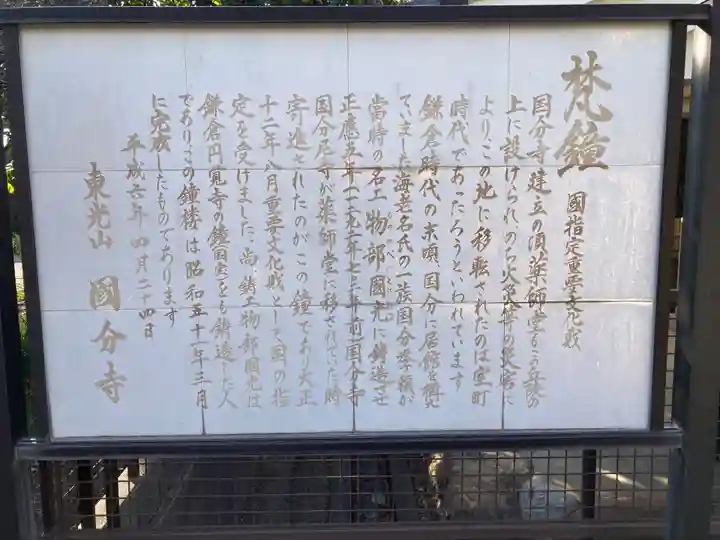 梵鐘
国指定重要文化財
国分寺建立の頃薬師堂もこの丘陵の
上に設けられ、のち火災等の災害に
より、この地に移転されたのは室町
時代であったろうといわれています
鎌倉時代の末頃、国分に居館を構え
ていました海老名氏の一族国分季頼が
當時の名工 物部國光に鋳造させ
正應五年(一二九二年七〇二年前)国分寺
国分尼寺が薬師堂に移されていた時
寄進されたのがこの鐘であり大正
十二年八月重要文化財として国の指
定を受けました、尚、鋳工物部國光は
鎌倉円覚寺の鐘(国宝)をも鋳造した人
であり、この鐘楼は昭和五十一年三月
に完成したものであります
平成六年四月二十四日
東光山 國分寺